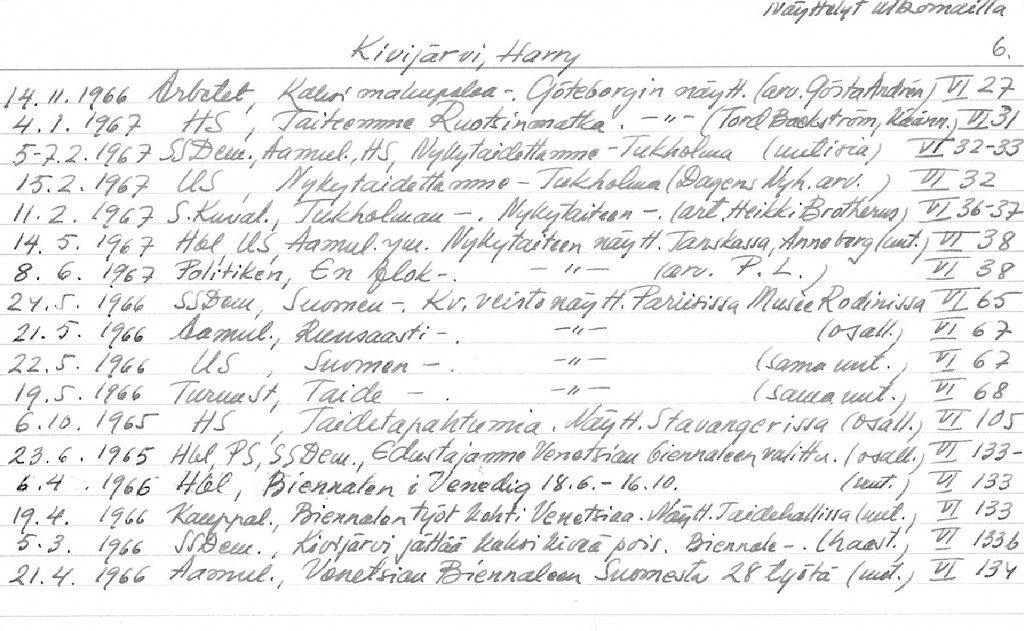 Näyttelyt ulkomailla
Kivijärvi, Harry 6.
14.11.1966 Arbetet, Kaksi makupalaa -. Göteborgin näytt. (arv. Gösta Andrén) VI 27
4.1.1967 HS, Taiteemme Ruotsinmatka. -"- (Tord Baeckström, käänn.) VI 31
5-7.2.1967 SSDem., Aamul., HS, Nykytaidettamme - Tukholma (uutisia) VI 32-33
15.2.1967 US, Nykytaidettamme - Tukholma (Dagens Nyh. arv.) VI 32
11.2.1967 S.Kuval., Tukholman -. Nykytaiteen -. (art. Heikki Brotherus) VI 36-37
14.5.1967 Hbl, US, Aamul. ym. Nykytaiteen näytt. Tanskassa, Anneberg (uut.) VI 38
8.6.1967 Politiken, En flok -. -"- (arv. P.L.) VI 38
24.5.1966 SSDem, Suomen -. Kv. veistonäytt. Pariisissa Musée Rodinissa VI 65
21.5.1966 Aamul., Runsaasti -. -"- (osall.) VI 67
22.5.1966 US, Suomen -. -"- (sama uut.) VI 67
19.5.1966 TurunSt, Taide -. -"- (sama uut.) VI 68
6.10.1965 HS, Taidetapahtumia. Näytt. Stavangerissa (osall.) VI 105
23.6.1965 Hbl, PS, SSDem., Edustajamme Venetsian biennaleen valittu. (osall.) VI 133-
6.4.1966 Hbl, Biennalen i Venedig 18.6.-16.10. (uut.) VI 133
19.4.1966 Kauppal., Biennalen työt kohti Venetsiaa. Näytt. Taidehallissa (uut.) VI 133
5.3.1966 SSDem., Kivijärvi jättää kaksi kiveä pois. Biennale -. (haast.) VI 133b
21.4.1966 Aamul., Venetsian Biennaleen Suomesta 28 työtä (uut.) VI 134